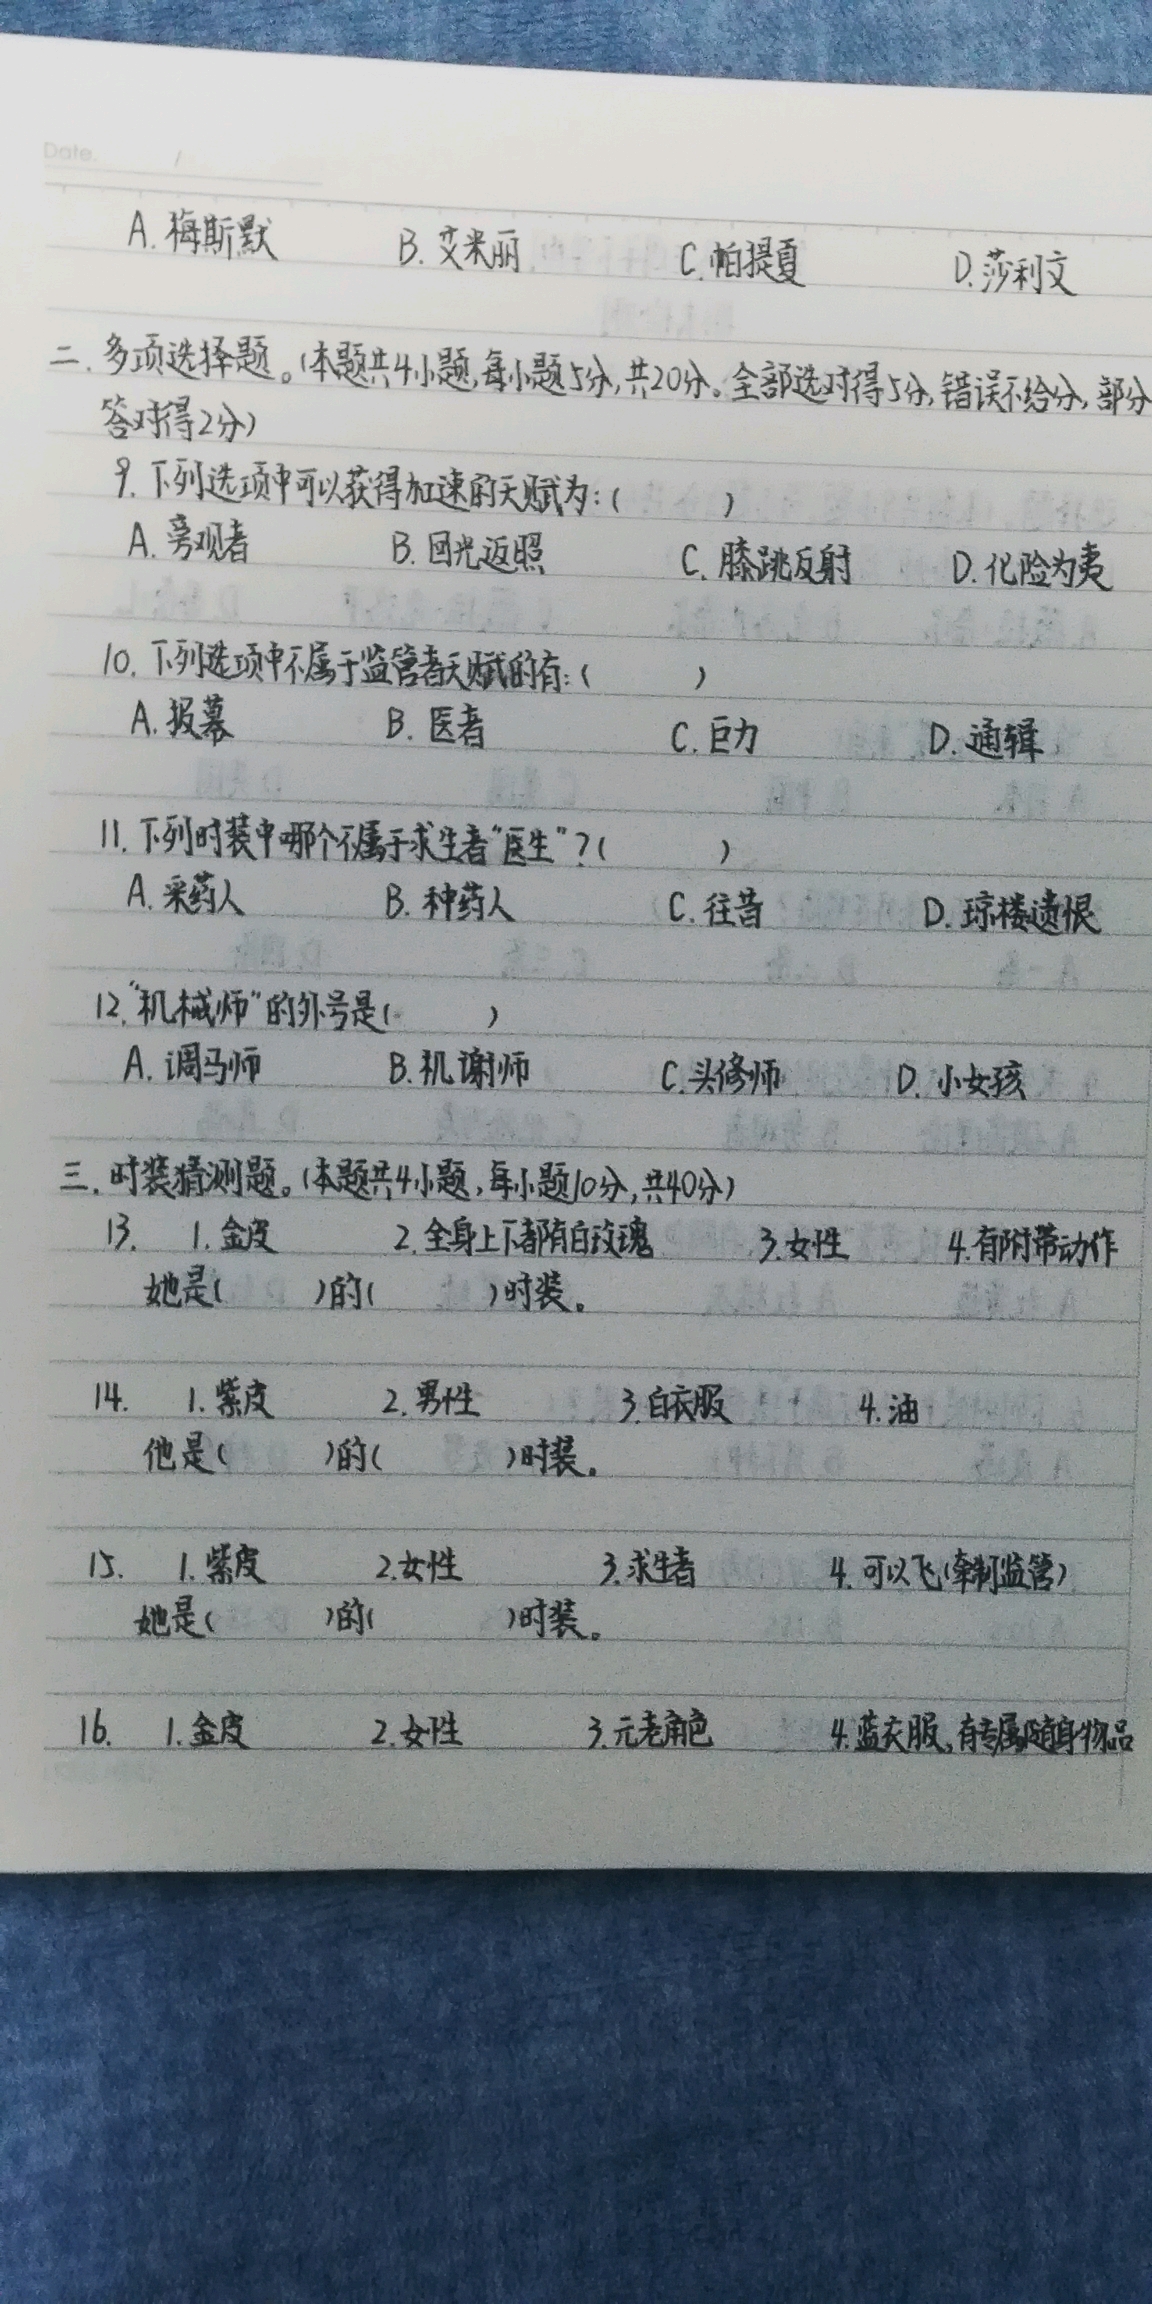 Date. /
A. 梅斯默 B. 艾米丽 C. 帕提夏 D. 莎利文
二. 多项选择题。(本题共4小题,每小题5分,共20分。全部选对得5分,错误不给分,部分
答对得2分)
9. 下列选项中可以获得加速的天赋为:( )
A. 旁观者 B. 回光返照 C. 膝跳反射 D. 化险为夷
10. 下列选项中不属于监管者天赋的有:( )
A. 报幕 B. 医者 C. 巨力 D. 通缉
11. 下列时装中哪个不属于求生者“医生”?( )
A. 采药人 B. 种药人 C. 往昔 D. 琼楼遗恨
12. “机械师”的外号是( )
A. 调马师 B. 机谢师 C. 头修师 D. 小女孩
三. 时装猜测题。(本题共4小题,每小题10分,共40分)
13. 1. 金皮 2. 全身上下都有白玫瑰 3. 女性 4. 有附带动作
她是( )的( )时装。
14. 1. 紫皮 2. 男性 3. 白衣服 4. 油
他是( )的( )时装。
15. 1. 紫皮 2. 女性 3. 求生者 4. 可以飞(牵制监管)
她是( )的( )时装。
16. 1. 金皮 2. 女性 3. 元老角色 4. 蓝衣服,有专属随身物品